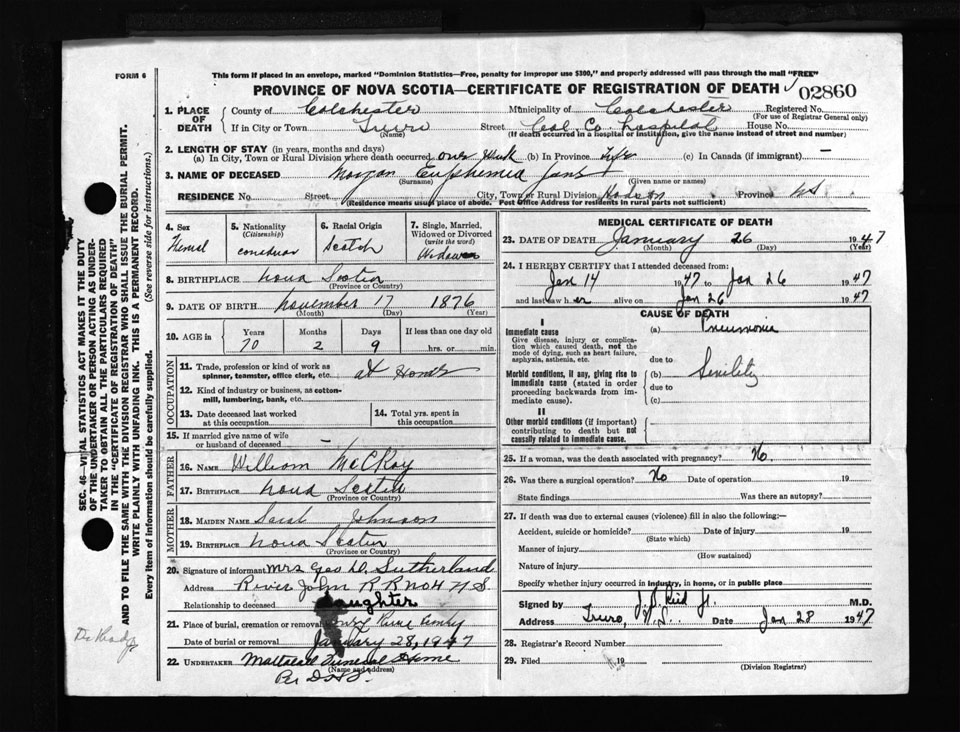 FORM 6
This form if placed in an envelope, marked "Dominion Statistics—Free, penalty for improper use $300," and properly addressed will pass through the mail "FREE"
PROVINCE OF NOVA SCOTIA—CERTIFICATE OF REGISTRATION OF DEATH
02860
1. PLACE OF DEATH
County of Colchester Municipality of Colchester Registered No.
(For use of Registrar General only)
If in City or Town Truro Street Col. Co. Hospital House No.
(Name) (If death occurred in a hospital or institution, give the name instead of street and number)
2. LENGTH OF STAY (in years, months and days)
(a) In City, Town or Rural Division where death occurred one week (b) In Province life (c) In Canada (if immigrant) —
3. NAME OF DECEASED Morgan Euphemia Jane
(Surname) (Given name or names)
RESIDENCE No. Street City, Town or Rural Division Province NS
(Residence means usual place of abode. Post Office Address for residents in rural parts not sufficient)
4. Sex
Femal
5. Nationality
(Citizenship)
6. Racial Origin
Scotch
7. Single, Married, Widowed or Divorced
(write the word)
Widow
8. BIRTHPLACE nova Scotia
(Province or Country)
9. DATE OF BIRTH november 17 1876
(Month) (Day) (Year)
10. AGE in
Years Months Days If less than one day old
70 2 9 hrs. or min.
OCCUPATION
11. Trade, profession or kind of work as spinner, teamster, office clerk, etc. at Home
12. Kind of industry or business, as cotton-mill, lumbering, bank, etc.
13. Date deceased last worked at this occupation
14. Total yrs. spent in this occupation
15. If married give name of wife or husband of deceased —
FATHER
16. NAME William McCKay
17. BIRTHPLACE nova Scotia
(Province or Country)
MOTHER
18. MAIDEN NAME Sarah Johnson
19. BIRTHPLACE nova Scotia
(Province or Country)
20. Signature of informant Mrs Geo D. Sutherland
Address River John R R No 4 N S.
Relationship to deceased Daughter
21. Place of burial, cremation or removal
Date of burial or removal January 28, 1947
22. UNDERTAKER Mattatall Funeral Home
(Name and address)
Per
MEDICAL CERTIFICATE OF DEATH
23. DATE OF DEATH January 26 1947
(Month) (Day) (Year)
24. I HEREBY CERTIFY that I attended deceased from:
Jan 14 1947 to Jan 26 1947
and last saw h er alive on Jan 26 1947
CAUSE OF DEATH
I
Immediate cause
Give disease, injury or complication which caused death, not the mode of dying, such as heart failure, asphyxia, asthenia, etc.
(a) Pneumonia
due to
Morbid conditions, if any, giving rise to immediate cause (stated in order proceeding backwards from immediate cause).
(b) Senility
due to
(c)
II
Other morbid conditions (if important) contributing to death but not causally related to immediate cause.
25. If a woman, was the death associated with pregnancy? No.
26. Was there a surgical operation? No Date of operation 19
State findings Was there an autopsy?
27. If death was due to external causes (violence) fill in also the following:—
Accident, suicide or homicide? Date of injury 19
(State which)
Manner of injury
(How sustained)
Nature of injury
Specify whether injury occurred in industry, in home, or in public place
Signed by Reid Jr. M.D.
Address Truro, N.S. Date Jan 28 1947
28. Registrar's Record Number
29. Filed 19
(Division Registrar)
SEC. 46—VITAL STATISTICS ACT MAKES IT THE DUTY
OF THE UNDERTAKER OR PERSON ACTING AS UNDER-
TAKER TO OBTAIN ALL THE PARTICULARS REQUIRED
IN THE "CERTIFICATE OF REGISTRATION OF DEATH"
AND TO FILE THE SAME WITH THE DIVISION REGISTRAR WHO SHALL ISSUE THE BURIAL PERMIT.
WRITE PLAINLY WITH UNFADING INK. THIS IS A PERMANENT RECORD.
Every item of information should be carefully supplied. (See reverse side for instructions.)